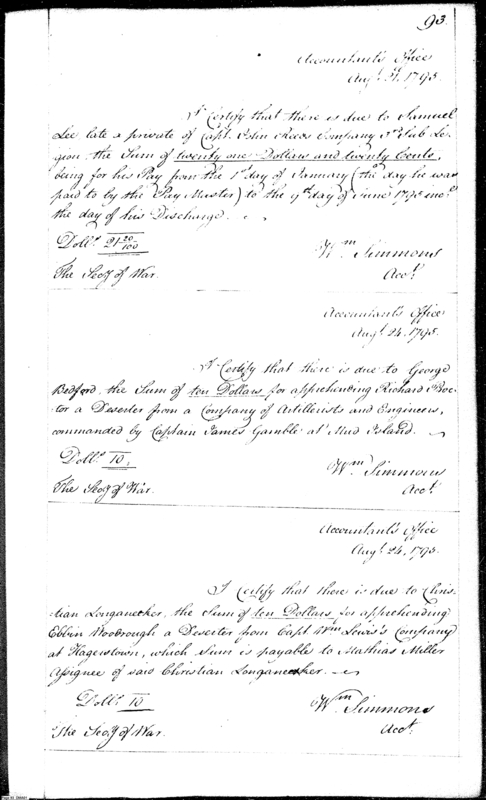 93.
Accountant's Office
Augt. 21. 1795.
I Certify that there is due to Samuel
Lee late a private of Capt. John Reeds Company 3d. Sub Le-
gion the Sum of twenty one Dollars and twenty Cents,
being for his Pay from the 1st. day of January (the day he was
paid to by the Pay Master) to the 9th day of June 1795 inc.
the day of his Discharge.
Dolls. 21 20/100
Wm Simmons
The Secy of War.
Acct.
Accountant's Office
Augt. 24, 1795.
I Certify that there is due to George
Bedford, the Sum of ten Dollars for apprehending Richard Proc-
tor a Deserter from a Company of Artillerists and Engineers,
commanded by Captain James Gamble at Mud Island.
Dolls. 10,
Wm. Simmons
The Secy of War.
Acct.
Accountant's Office
Augt. 24, 1795.
I Certify that there is due to Chris-
tian Longanecker, the Sum of ten Dollars, for apprehending
Ebbin Woodrough a Deserter from Capt Wm Lewis's Company
at Hagerstown, which Sum is payable to Mathias Miller
Assignee of said Christian Longanecker.
Dolls. 10
Wm Simmons
The Secy of War.
Acct.